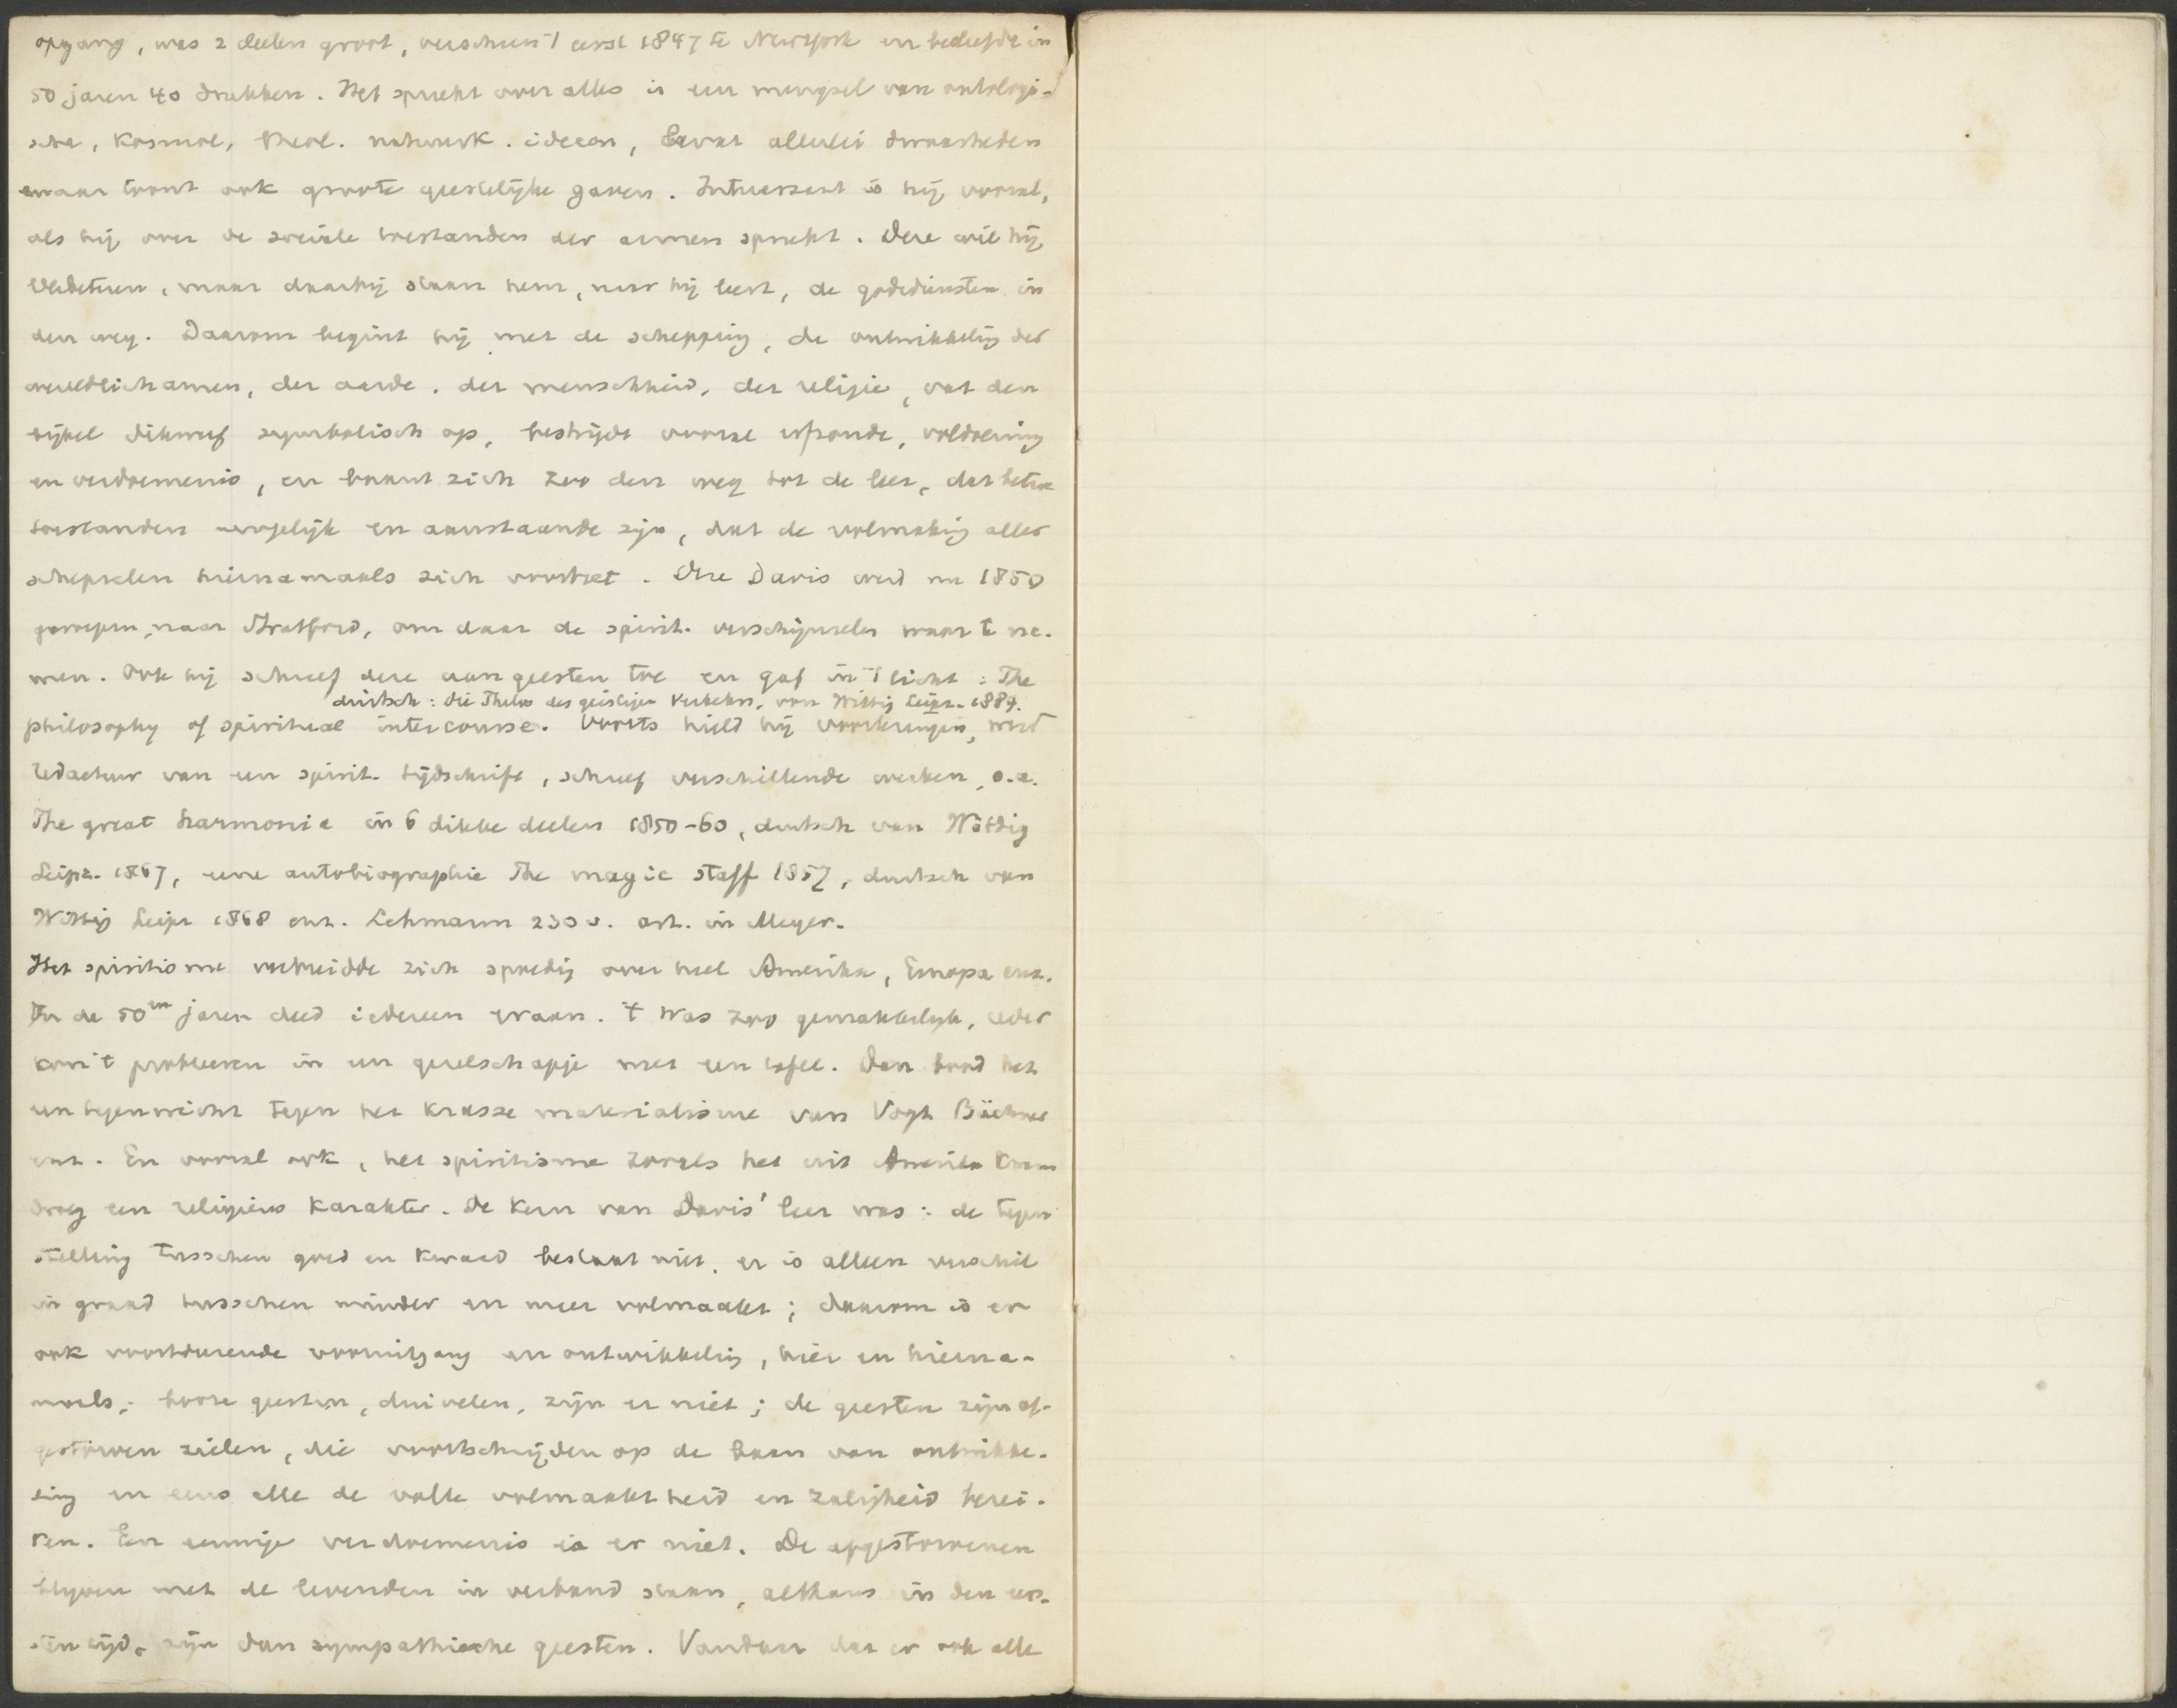 opgang, was 2 deelen groot, verscheen 't eerst 1847 te Newyork en beleefde in
50 jaren 40 drukken. Het spreekt over alles is een mengsel van ontologi-
sche, kosmol, theol. natuurk. ideeen, bevat allerlei dwaasheden
maar toont ook groote geestelijke gaven. Interessant is hij vooral,
als hij over de sociale toestanden der armen spreekt. Deze wil hij
verbeteren, maar daarbij staan hem, naar hij leert, de godsdiensten in
den weg. Daarom begint hij met de schepping, de ontwikkelig der
wereldlichamen, der aarde, der menschheid, der religie, vat den
bijbel dikwerf symbolisch op, bestrijdt vooral erfzonde, voldoening
en verdoemenis, en baant zich zoo den weg tot de leer, dat betere
toestanden mogelijk en aanstaande zijn, dat de volmakig aller
schepselen hiernamaals zich voortzet. Deze Davis werd nu 1850
geroepen naar Stratford, om daar de spirit. verschijnselen waar te ne-
men. Ook hij schreef deze aan geesten toe en gaf in 't licht: The
duitsch: Die Philos des geistigen Verkehrs, von Wittig Leipz. 1884.
philosophy of spiritual intercourse. Voorts hield hij voorlezingen, werd
redacteur van een spirit. tijdschrift, schreef verschillende werken, o.a.
The great harmonia in 6 dikke deelen 1850-60, duitsch van Wittig
Leipz. 1867, eene autobiographie The magic staff 1857, duitsch van
Wittig Leipz 1868 enz. Lehmann 230 v. art. in Meyer.
Het spiritisme verbreidde zich spoedig over heel Amerika, Europa enz.
In de 50en jaren deed iedereen eraan. 't Was zoo gemakkelijk, ieder
kon 't probeeren in een gezelschapje met een tafel. Dan bood het
een tegenwicht tegen het krasse materialisme van Vogt Büchner
enz. En vooral ook, het spiritisme zooals het uit Amerika kwam
droeg een religieus karakter. De kern van Davis' leer was: de tegen
stelling tusschen goed en kwaad bestaat niet, er is alleen verschil
in graad tusschen minder en meer volmaakt; daarom is er
ook voortdurende vooruitgang en ontwikkelig, hier en hierna-
maals; booze geesten, duivelen, zijn er niet; de geesten zijn af-
gestorven zielen, die voortschrijden op de baan van ontwikke-
ling en eens alle de volle volmaaktheid en zaligheid berei-
ken. Een eeuwige verdoemenis is er niet. De afgestorvenen
blijven met de levenden in verband staan, althans in den eer-
sten tijd, zijn dan sympathische geesten. Vandaar dat er ook alle